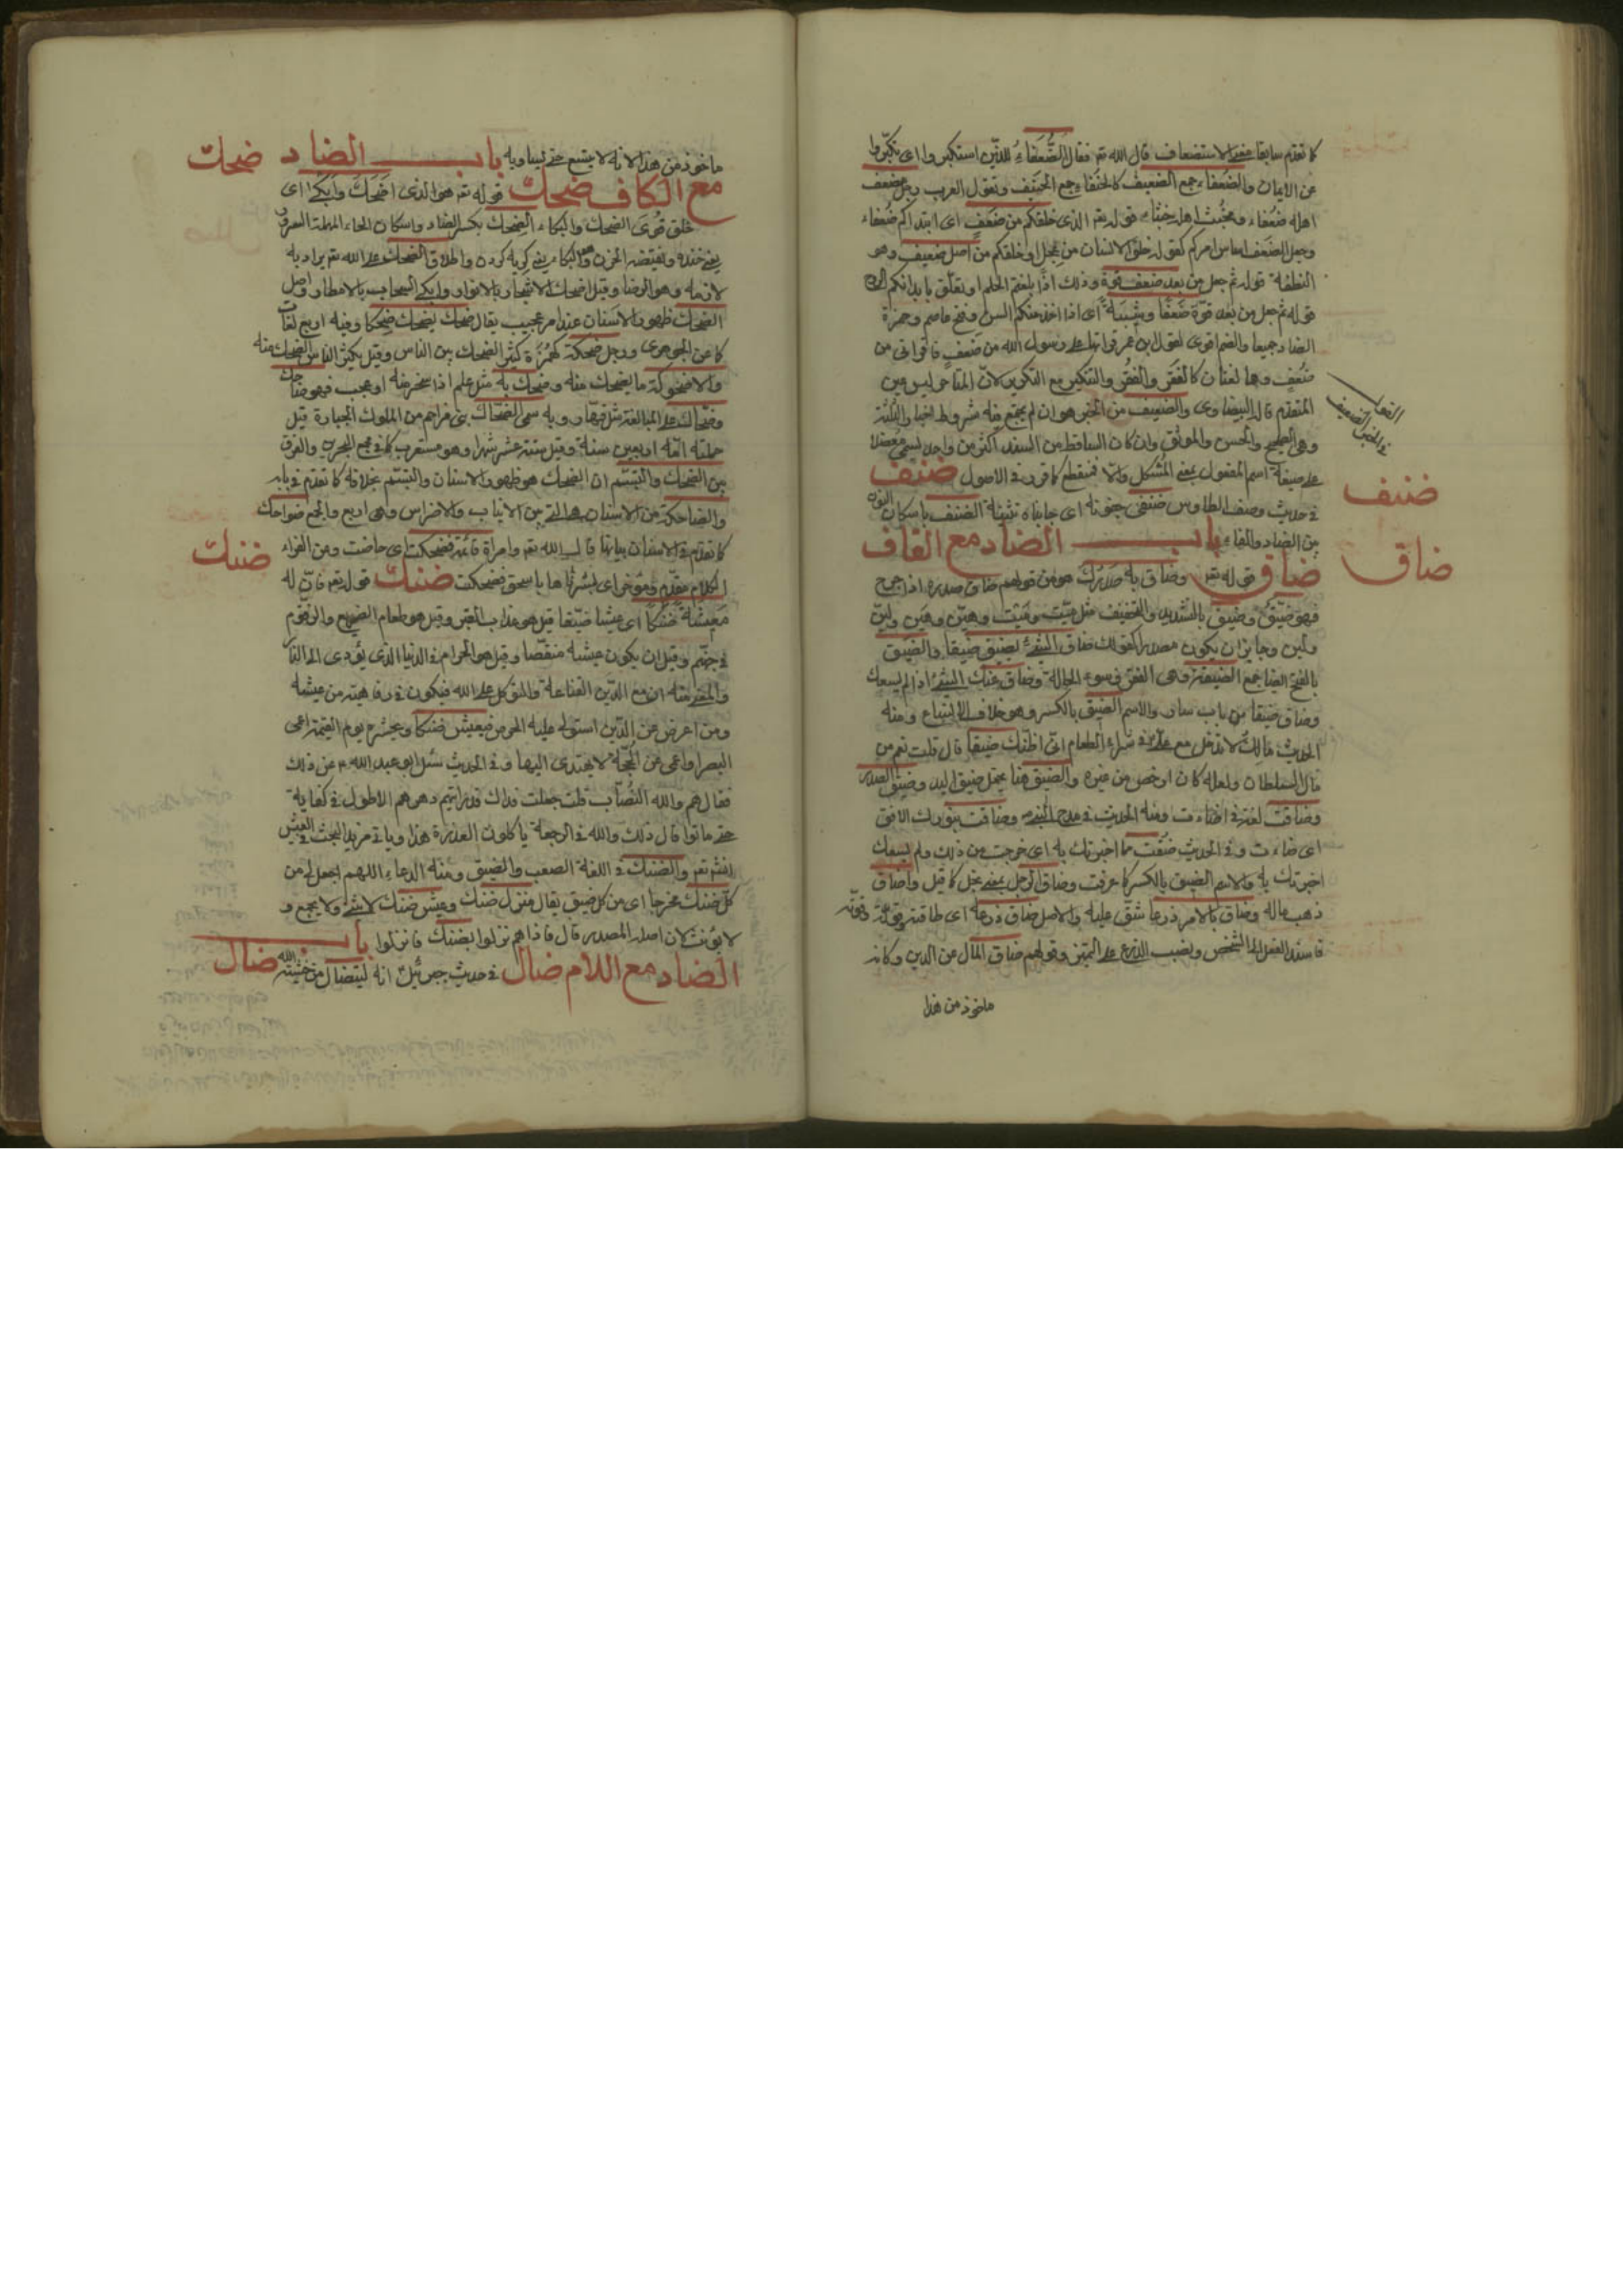 كما تقدم سابقا معنى الاستضعاف قال الله تع فقال الضُّعَفَاءُ للذين استكبروا اى تكبّروا
عن الايمان والضعفاء جمع الضعيف كالحنفاء جمع الحنيف وتقول العرب رجل مضعف
اهله ضعفاء ومخبث اهله خبثاء قوله تع الذى خلقكم من ضعف اى ابتداكم ضعفاء
وجعل الضعف اساس امركم كقوله خلق الانسان من عجل او خلقكم من اصل ضعيف وهو
النطفة قوله ثم جعل من بعد ضعف قوة وذلك اذا بلغتم الحلم او تعلّق بابدانكم الروح
قوله ثم جعل من بعد قوّة ضعفا وشيبة اى اذا اخذ منكم السن وفتح عاصم وحمزة
الضاد جميعا والضم اقوى لقول ابن عمر قراتها على رسول الله من ضَعف فاقرانى من
ضُعف وهما لغتان كالفَقر والفُقر والتنكير مع التكرير لان المتاخر ليس عين
المتقدم قاله البيضاوى والضعيف من الخبر هو ان لم يجمع فيه شروط اخبار الثلثة
وهى الصحيح والحسن والموثق وان كان الساقط من السند اكثر من واحد يسمى معضلا
على صيغة اسم المفعول بمعنى المشكل والا فمنقطع كما قرر فى الاصول ضنف
فى حديث وصف الطاوس ضنفى جفونه اى جانباه تثنية الضنف باسكان النون
بين الضاد والفاء باب الضاد مع القاف
ضاق قوله تع وضاق به صَدْرُكَ هو من قولهم ضاق صدره اذا حرج
فهو ضيّق وضيق بالتشديد والتخفيف مثل ميّت وميت وهيّن وهين وليّن
ولين وجايز ان يكون مصدرا كقولك ضاق الشئ يضيق ضيقا والضيق
بالفتح ايضا جمع الضيقة وهى الفقر وسوء الحالة وضاق عنك الشئ اذا لم يسعك
وضاق ضيقا من باب سار والاسم الضيق بالكسر وهو خلاف الاتساع ومنه
الحديث مالك لا تدخل مع على فى شراء الطعام انى اظنك ضيقا قال قلت نعم من
مال السلطان ولعله كان ارخص من غيره والضيق هنا يحتمل ضيق اليد وضيق الصدر
وضاقت لغة فى اضاءت ومنه الحديث فى مدح النبى وضاقت بنورك الافق
اى ضاءت وفى الحديث ضقت مما اخبرتك به اى خرجت من ذلك ولم يسعك
اخبرتك به والاسم الضيق بالكسر كما عرفت وضاق الرجل بمعنى بخل كما قيل واضاق
ذهب ماله وضاق بالامر ذرعا شق عليه والاصل ضاق ذرعه اى طاقته وقوته
فاسند الفعل الى الشخص ونصب الذرع على التميز وقولهم ضاق المال عن الدين وكانه
ماخوذ من هذا
ضنف
ضاق
ماخوذ من هذا لانه لا يتسع حتى يساويه باب الضاد
مع الكاف ضحك قوله تع هو الذى اَضْحَكَ وَاَبْكى اى
خلق قوى الضحك والبكاء الضحك بكسر الضاد واسكان الحاء المهملة المعروف
يعنى خنده ونقيضه الحزن والبكاء يعنى كريه كردن واطلاق الضحك على الله تع يراد به
لازمه وهو الرضا وقيل اضحك الاشجار بالانوار وابكى السحاب بالامطار واصل
الضحك ظهور الاسنان عند امر عجيب يقال ضحك يضحك ضحكا وفيه اربع لغات
كما عن الجوهرى ورجل ضحكة كهمزة كثير الضحك بين الناس وقيل يكثر الناس الضحك منه
والاضحوكة ما يضحك منه وضحك به مثل علم اذا سخر منه او عجب فهو ضاحك
وضحاك على المبالغة مثل قهار وبه سمى الضحاك بن مزاحم من الملوك الجبابرة قيل
حملته امه اربعين سنة وقيل ستة عشر شهرا وهو مستعرب كما فى مجمع البحرين والفرق
بين الضحك والتبسّم ان الضحك هو ظهور الاسنان والتبسّم بخلافه كما تقدم فى بابه
والضاحكة من الاسنان هى التى بين الانياب والاضراس وهى اربع والجمع ضواحك
كما تقدم فى الاسنان بيانها قال الله تع وامراة قائمة فضحكت اى حاضت ومن الفراء
الكلام مقدم ومؤخر اى بشرناها باسحق فضحكت ضنك قوله تع فان له
مَعِيشَةً ضَنْكًا اى عيشا ضيّقا قيل هو عذاب القبر وقيل هو طعام الضريع والزقوم
فى جهنم وقيل ان يكون عيشه منغصا وقيل هو الحرام فى الدنيا الذى يؤدى الى النار
والمعنى منه ان مع الدين القناعة والتوكل على الله فيكون فى رفاهية من عيشه
ومن اعرض عن الدين استولى عليه الحرص فيعيش ضنكا ويحشره يوم القيمة اعمى
البصر او اعمى عن الحجّة لا يهتدى اليها وفى الحديث سئل ابو عبد الله ع عن ذلك
فقال هم والله النصّاب قلت جعلت فداك قد رايتهم دهرهم الاطول فى كفاية
حتى ماتوا قال ذلك والله فى الرجعة ياكلون العذرة هذا وياتى مزيد البحث فى العيش
انش تع والضنك فى اللغة الصعب والضيق ومنه الدعاء اللهم اجعل لى من
كل ضنك مخرجا اى من كل ضيق يقال منزل ضنك وعيش ضنك لا يثنى ولا يجمع و
لا يؤنث لان اصله المصدر قال فاذا هم نزلوا بضنك فانزلوا باب
الضاد مع اللام ضال فى حديث جبرئيل انه ليتضال من خشية الله
ضحك
ضنك
ضال